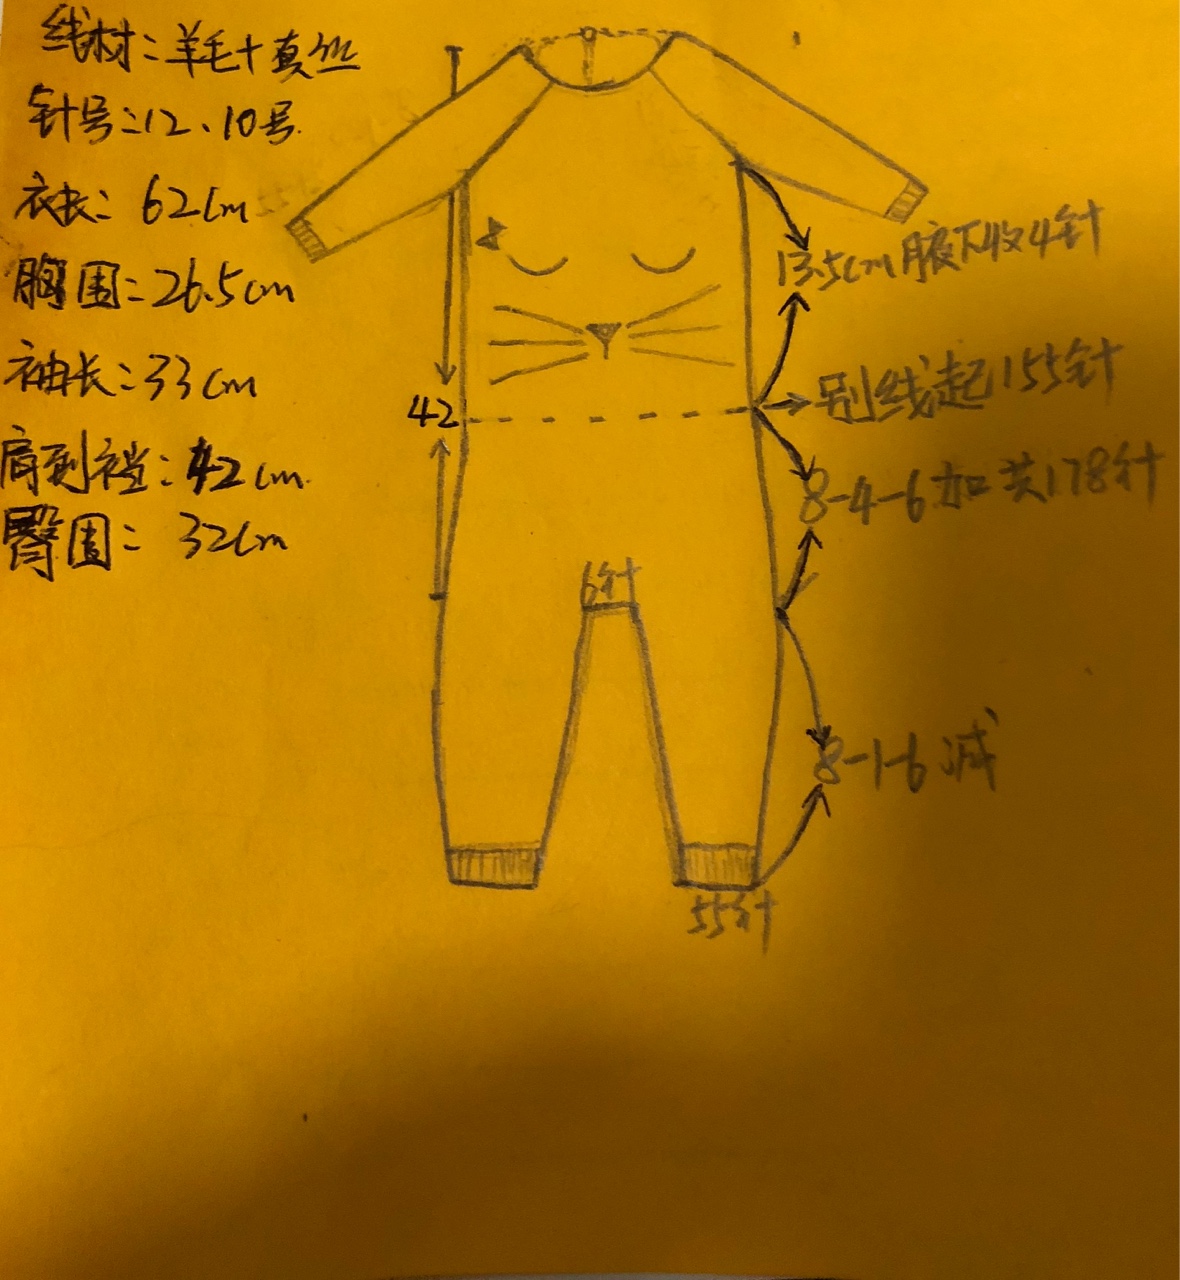 线材：羊毛+真丝
针号：12、10号
衣长：62cm
胸围：26.5cm
袖长：33cm
肩到裆：42cm
臀围：32cm
13.5cm腋下收4针
42
别线起155针
8-4-6加共178针
6针
8-1-6减
55针